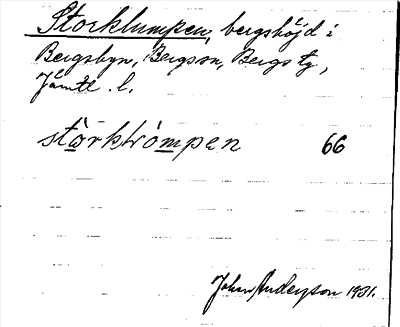 Storklumpen, bergshöjd i
Bergsbyn, Bergs sn, Bergs tg,
Jämtl. l.
stàrktrómpen 66
Johan Anderson 1931.